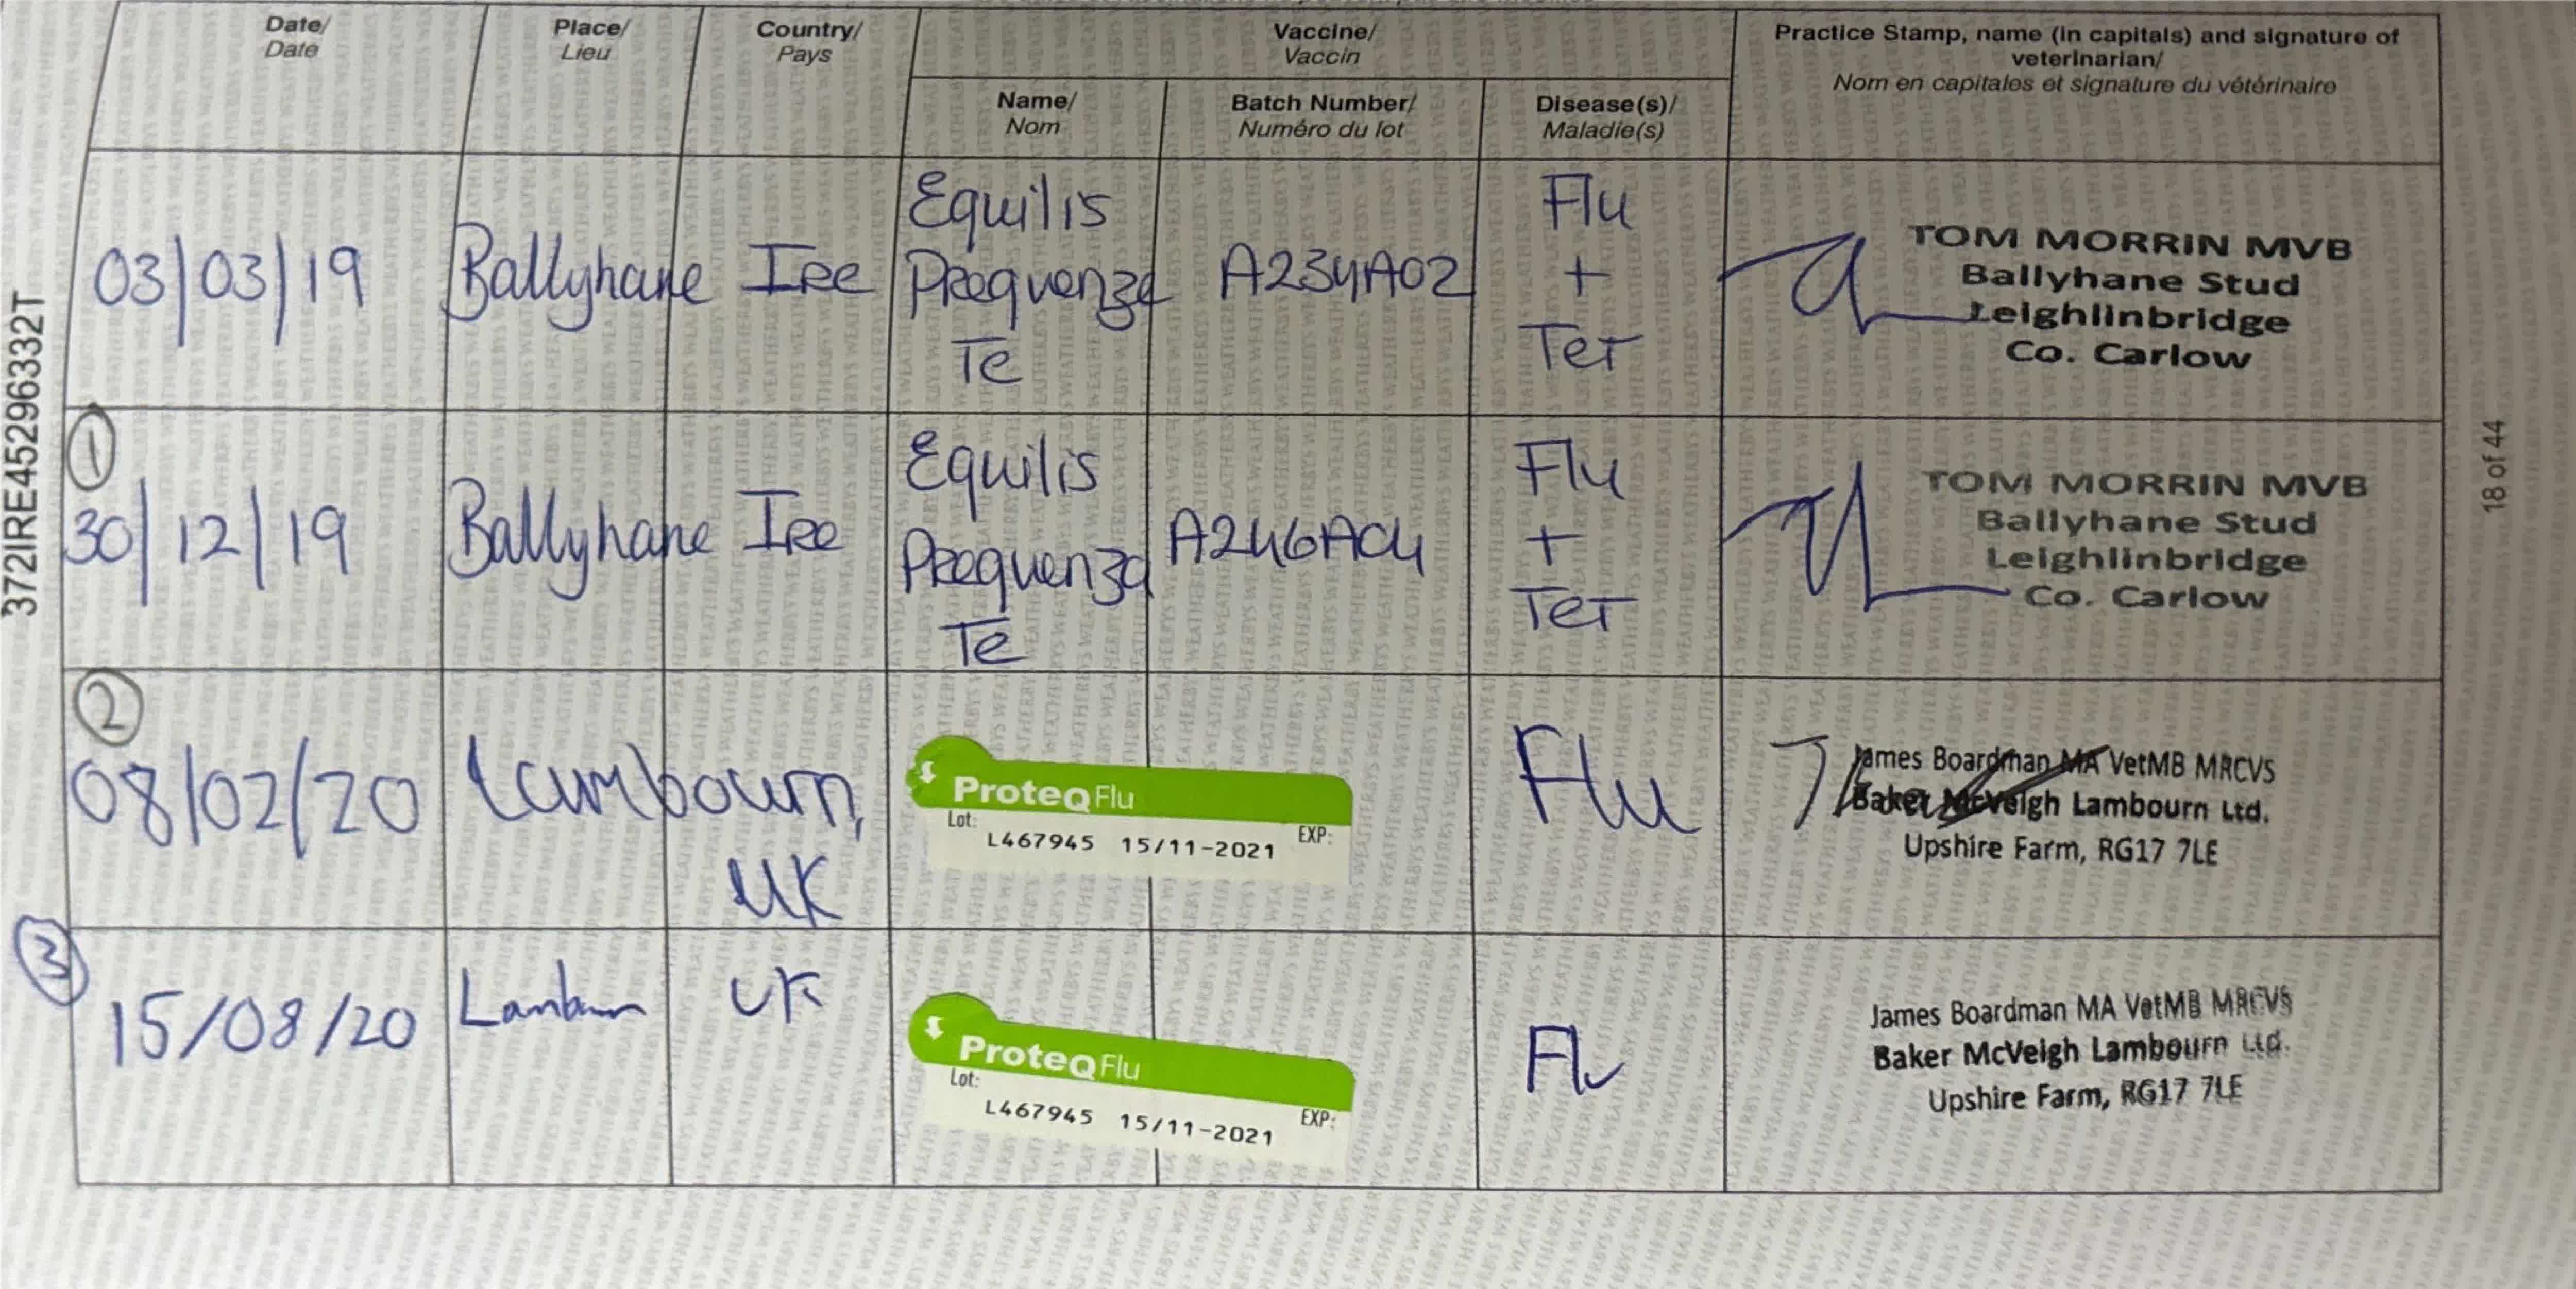 Date/
Date
Place/
Lieu
Country/
Pays
Vaccine/
Vaccin
Practice Stamp, name (in capitals) and signature of
veterinarian/
Nom en capitales et signature du vétérinaire
Name/
Nom
Batch Number/
Numéro du lot
Disease(s)/
Maladie(s)
03/03/19
Ballyhane
Ire
Equilis
Prequenza
Te
A234A02
Flu
+
Tet
TOM MORRIN MVB
Ballyhane Stud
Leighlinbridge
Co. Carlow
1
30/12/19
Ballyhane
Ire
Equilis
Prequenza
Te
A246A04
Flu
+
Tet
TOM MORRIN MVB
Ballyhane Stud
Leighlinbridge
Co. Carlow
2
08/02/20
Lambourn,
UK
ProteqFlu
Lot:
EXP:
L467945 15/11-2021
Flu
James Boardman MA VetMB MRCVS
Baker McVeigh Lambourn Ltd.
Upshire Farm, RG17 7LE
3
15/08/20
Lambourn
UK
ProteqFlu
Lot:
EXP:
L467945 15/11-2021
Flu
James Boardman MA VetMB MRCVS
Baker McVeigh Lambourn Ltd.
Upshire Farm, RG17 7LE
372IRE45296332T
18 of 44
WEATHERBYS